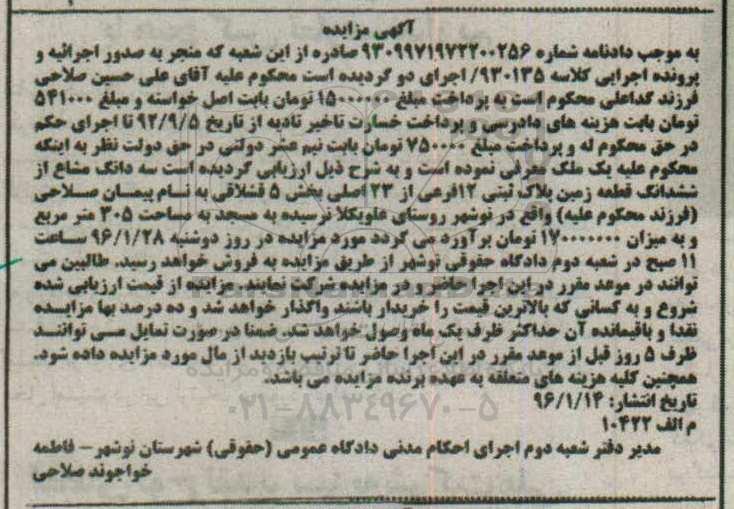 آگهی مزایده
به موجب دادنامه شماره ۹۳۰۹۹۷۱۹۷۲۲۰۰۲۵۶ صادره از این شعبه که منجر به صدور اجرائیه و
پرونده اجرایی کلاسه ۹۳۰۱۳۵/ اجرای دو گردیده است محکوم علیه آقای علی حسین صلاحی
فرزند گداعلی محکوم است به پرداخت مبلغ ۱۵۰۰۰۰۰۰ تومان بابت اصل خواسته و مبلغ ۵۴۱۰۰۰
تومان بابت هزینه های دادرسی و پرداخت خسارت تاخیر تادیه از تاریخ ۹۲/۹/۵ تا اجرای حکم
در حق محکوم له و پرداخت مبلغ ۷۵۰۰۰۰ تومان بابت نیم عشر دولتی در حق دولت نظر به اینکه
محکوم علیه یک ملک معرفی نموده است و به شرح ذیل ارزیابی گردیده است سه دانگ مشاع از
ششدانگ قطعه زمین پلاک ثبتی ۱۲فرعی از ۲۳ اصلی بخش ۵ قشلاقی به نام پیمان صلاحی
(فرزند محکوم علیه) واقع در نوشهر روستای علویکلا نرسیده به مسجد به مساحت ۳۰۵ متر مربع
و به میزان ۱۷۰۰۰۰۰۰۰ تومان برآورد می گردد مورد مزایده در روز دوشنبه ۹۶/۱/۲۸ ساعت
۱۱ صبح در شعبه دوم دادگاه حقوقی نوشهر از طریق مزایده به فروش خواهد رسید. طالبین می
توانند در موعد مقرر در این اجرا حاضر و در مزایده شرکت نمایند. مزایده از قیمت ارزیابی شده
شروع و به کسانی که بالاترین قیمت را خریدار باشند واگذار خواهد شد و ده درصد بها مزایده
نقدا و باقیمانده آن حداکثر ظرف یک ماه وصول خواهد شد. ضمنا در صورت تمایل می توانند
ظرف ۵ روز قبل از موعد مقرر در این اجرا حاضر تا ترتیب بازدید از مال مورد مزایده داده شود.
همچنین کلیه هزینه های متعلقه به عهده برنده مزایده می باشد.
تاریخ انتشار: ۹۶/۱/۱۴
۰۲۱-۸۸۳۴۹۶۷۰-۵
م الف ۱۰۴۲۲
مدیر دفتر شعبه دوم اجرای احکام مدنی دادگاه عمومی (حقوقی) شهرستان نوشهر- فاطمه
خواجوند صلاحی